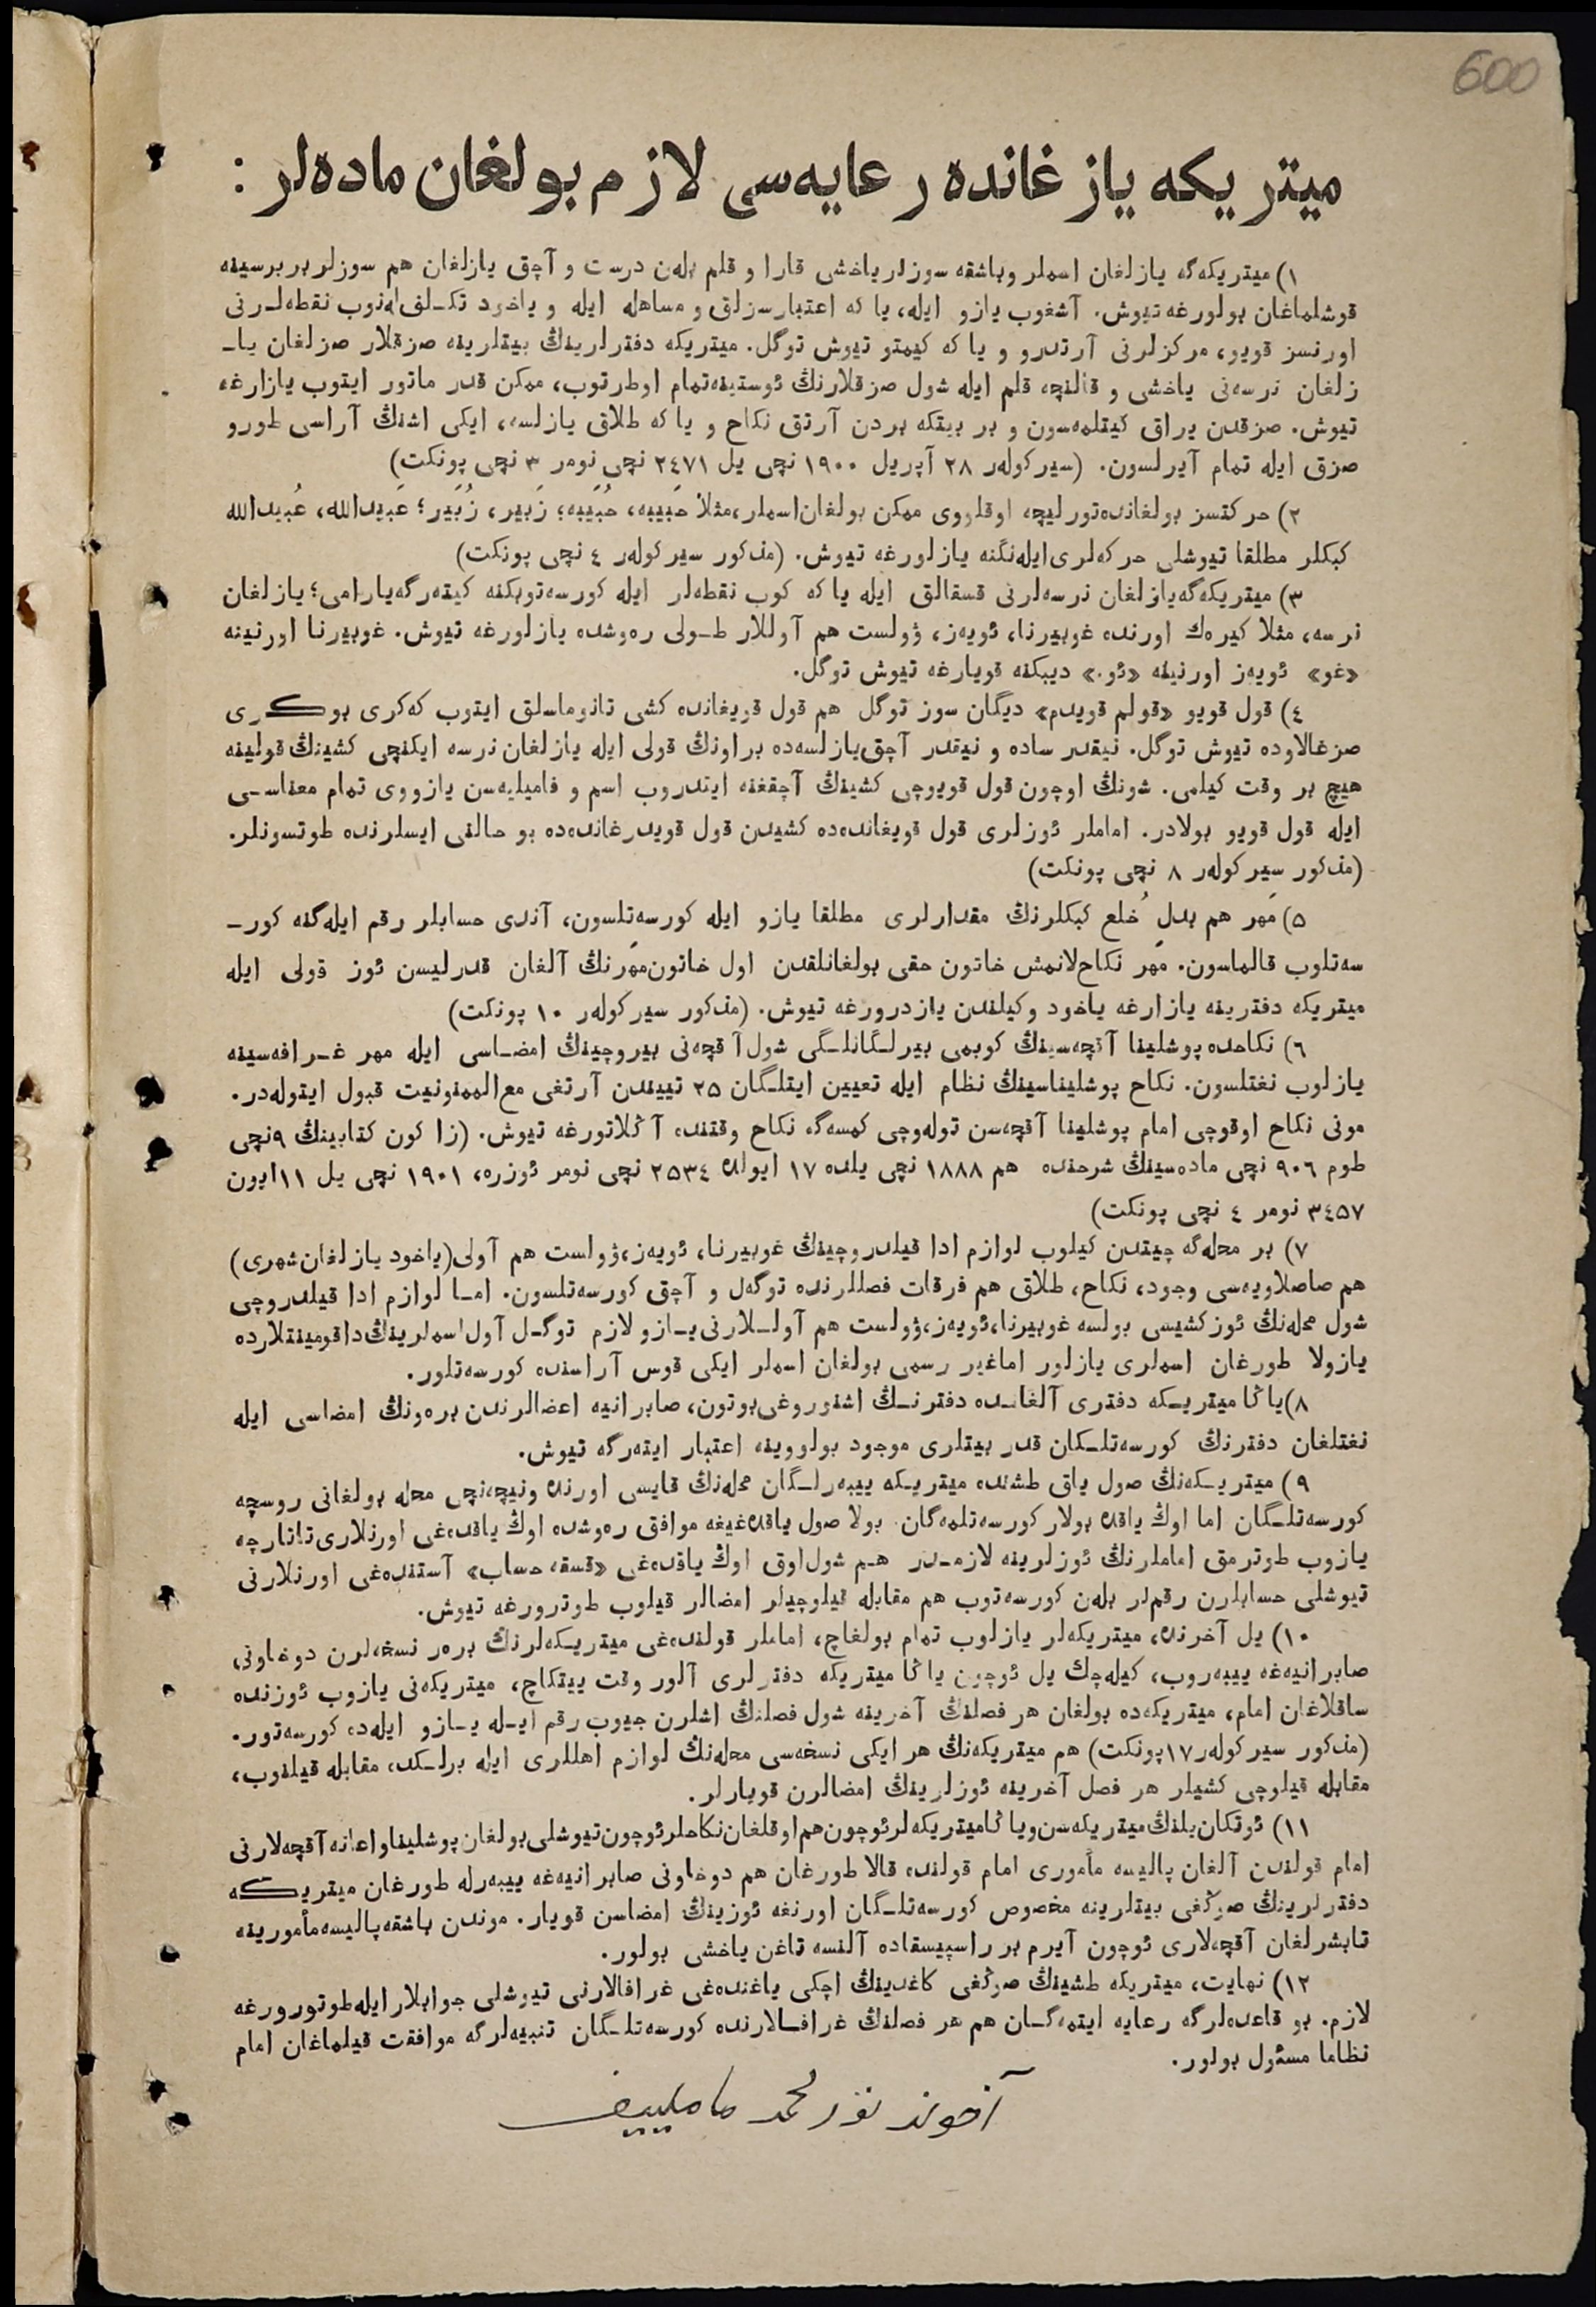 600
ميتريكه يازغانده رعايه‌سى لازم بولغان ماده‌لر :
١) ميتريكه‌گه يازلغان اسملر وباشقه سوزلر ياخشى قارا و قلم بله‌ن درست و آچق يازلغان هم سوزلر بربرسينه
قوشلماغان بولورغه تيوش. آشغوب يازو ايله، يا كه اعتبارسزلق و مساهله ايله و ياخود تكـلف له‌نوب نقطه‌لـرنى
اورنسز قويو، مركزلرنى آرتدرو و يا كه كيمتو تيوش توگل. ميتريكه دفترلرينڭ بيتلرينه صزقلار صزلغان يا‌ـ
زلغان نرسه‌نى ياخشى و قالنچه قلم ايله شول صزقلارنڭ ئوستينه تمام اوطرتوب، ممكن قدر ماتور ايتوب يازارغه
تيوش. صزقدن يراق كيتلمه‌سون و بر بيتكه بردن آرتق نكاح و يا كه طلاق يازلسه، ايكى اشنڭ آراسى طورو
صزق ايله تمام آيرلسون. (سيركولەر ٢٨ آپريل ١٩٠٠ نچى يل ٢٤٧١ نچى نومر ٣ نچى پونكت)
٢) حركتسز بولغانده‌تورليچه اوقلووى ممكن بولغان اسملر،مثلا حَبيبه، حُبَيبه؛ زَبير، زُبَير؛ عَبيدالله، عُبيدالله
كبكلر مطلقا تيوشلى حركه‌لرى ايله‌نگنه يازلورغه تيوش. (مذكور سيركولەر ٤ نچى پونكت)
٣) ميتريكه‌گه يازلغان نرسه‌لرنى قسقالق ايله يا كه كوب نقطه‌لر ايله كورسه‌توبكنه كيته‌رگه يارامى؛ يازلغان
نرسه، مثلا كيره‌ك اورنده غوبيرنا، ئويه‌ز، ۋولست هم آوللار طـولى ره‌وشده يازلورغه تيوش. غوبيرنا اورنينه
«غو» ئويه‌ز اورنينه «ئو.» ديبكنه قويارغه تيوش توگل.
٤) قول قويو «قولم قويدم» ديگان سوز توگل هم قول قويغانده كشى تانوماسلق ايتوب كه‌كرى بوكــرى
صزغالاوده تيوش توگل. نيقدر ساده و نيتدر آچق يازلسه‌ده براونڭ قولى ايله يازلغان نرسه ايكنچى كشينڭ قولينه
هيچ بر وقت كيلمى. شونڭ اوچون قول قويوچى كشينڭ آچقغنه ايتدروب اسم و فاميليه‌سن يازووى تمام معناسـى
ايله قول قويو بولادر. اماملر ئوزلرى قول قويغانده‌ده كشيدن قول قويدرغانده‌ده بو حالنى ايسلرنده طوتسونلر.
(مذكور سيركولەر ٨ نچى پونكت)
٥) مَهر هم بدلِ خُلع كبكلرنڭ مقدارلرى مطلقا يازو ايله كورسه‌تلسون، آندى حسابلر رقم ايله‌گنه كورـ
سه‌تلوب قالماسون. مَهر نكاح‌لانمش خاتون حقى بولغانلقدن اول خاتون مَهرنڭ آلغان قدرليسن ئوز قولى ايله
ميتريكه دفترينه يازارغه ياخود وكيلندن يازدرورغه تيوش. (مذكور سيركولەر ١٠ پونكت)
٦) نكاحده پوشلينا آقچه‌سينڭ كوبمى بيرلـگانلـگى شول آقچه‌نى بيروچينڭ امضـاسى ايله مهر غـرافه‌سينه
يازلوب نغتلسون. نكاح پوشليناسينڭ نظام ايله تعيين ايتلـگان ٢٥ تييندن آرتغى مع‌الممنونيت قبول ايتوله‌در.
مونى نكاح اوقوچى امام پوشلينا آقچه‌سن توله‌وچى كمسه‌گه نكاح وقتنده آڭلاتورغه تيوش. (زاكون كتابينڭ ٩نچى
طوم ٩٠٦ نچى ماده‌سينڭ شرحنده هم ١٨٨٨ نچى يلده ١٧ ايولده ٢٥٣٤ نچى نومر ئوزره، ١٩٠١ نچى يل ١١ايون
٣٤٥٧ نومر ٤ نچى پونكت)
٧) بر محله‌گه چيتدن كيلوب لوازم ادا قيلدروچينڭ غوبيرنا، ئويه‌ز،ۋولست هم آولى(ياخود يازلغان شهرى)
هم صاصلاويه‌سى وجود، نكاح، طلاق هم فرقات فصللرنده توگه‌ل و آچق كورسه‌تلسون. امـا لوازم ادا قيلدروچى
شول محله‌نڭ ئوز كشيسى بولسه غوبيرنا،ئويه‌ز،ۋولست هم آولـلارنى يـازو لازم توگـل آول اسملرينڭ داقومينتلارده
يازولا طورغان اسملرى يازلور اماغير رسمى بولغان اسملر ايكى قوس آراسنده كورسه‌تلور.
٨)ياڭا ميتريـكه دفترى آلغانـده دفترنـڭ اشنوروغى بوتون، صابرانيه اعضالرندن بره‌ونڭ امضاسى ايله
نغتلغان دفترنڭ كورسه‌تلـكان قدر بيتلرى موجود بولووينه اعتبار ايته‌رگه تيوش.
٩) ميتريـكه‌نڭ صول ياق طشنده ميتريـكه ييبه‌رلـگان محله‌نڭ قايسى اورنده ونيچه‌نچى محله بولغانى روسچه
كورسه‌تلـگان اما اوڭ ياقده بولار كورسه‌تلمه‌گان. بولا صول ياقده‌غيغه موافق ره‌وشده اوڭ ياقده‌غى اورنلارى تاتارچه
يازوب طوترمق اماملرنڭ ئوزلرينه لازمـدر هـم شول اوق اوڭ ياقده‌غى «قسقه حساب» آستنده‌غى اورنلارنى
تيوشلى حسابلرن رقم‌لر بله‌ن كورسه‌توب هم مقابله قيلوچيلر امضالر قيلوب طوترورغه تيوش.
١٠) يل آخرنده، ميتريكه‌لر يازلوب تمام بولغاچ، اماملر قولنده‌غى ميتريـكه‌لرنڭ بره‌ر نسخه‌لرن دوخاونى
صابرانيه‌غه ييبه‌روب، كيله‌چك يل ئوچون ياڭا ميتريكه دفترلرى آلور وقت ييتكاچ، ميتريكه‌نى يازوب ئوزنده
ساقلاغان امام، ميتريكه‌ده بولغان هر فصلنڭ آخرينه شول فصلنڭ اشلرن جيوب رقم ايـله يـازو ايله‌ده كورسه‌تور.
(مذكور سيركولەر ١٧پونكت) هم ميتريكه‌نڭ هر ايكى نسخه‌سى محله‌نڭ لوازم اهللرى ايله برلـكده مقابله قيلنوب،
مقابله قيلوچى كشيلر هر فصل آخرينه ئوزلرينڭ امضالرن قويارلر.
١١) ئوتكان يلنڭ ميتريكه‌سن و ياڭا ميتريكه‌لر ئوچون هم اوقلغان نكاحلر ئوچون تيوشلى بولغان پوشلينا و اعانه آقچه‌لارنى
امام قولندن آلغان پاليسه مأمورى امام قولنده قالا طورغان هم دوخاونى صابرانيه‌غه ييبه‌رله طورغان ميتريـكه
دفترلرينڭ صوڭغى بيتلرينه مخصوص كورسه‌تلـگان اورنغه ئوزينڭ امضاسن قويار. موندن باشقه پاليسه مأمورينه
تابشرلغان آقچه‌لارى ئوچون آيرم بر راسپيسقاده آلنسه تاغن ياخشى بولور.
١٢) نهايت، ميتريكه طشينڭ صوڭغى كاغدينڭ اچكى ياغنده‌غى غرافالارنى تيوشلى جوابلار ايله طوتورورغه
لازم. بو قاعده‌لرگه رعايه ايتمه‌گـان هم هر فصلنڭ غرافـالارنده كورسه‌تلـگان تنبيه‌لرگه موافقت قيلماغان امام
نظاما مسئول بولور.
آخوند نورمحمد ماملييف